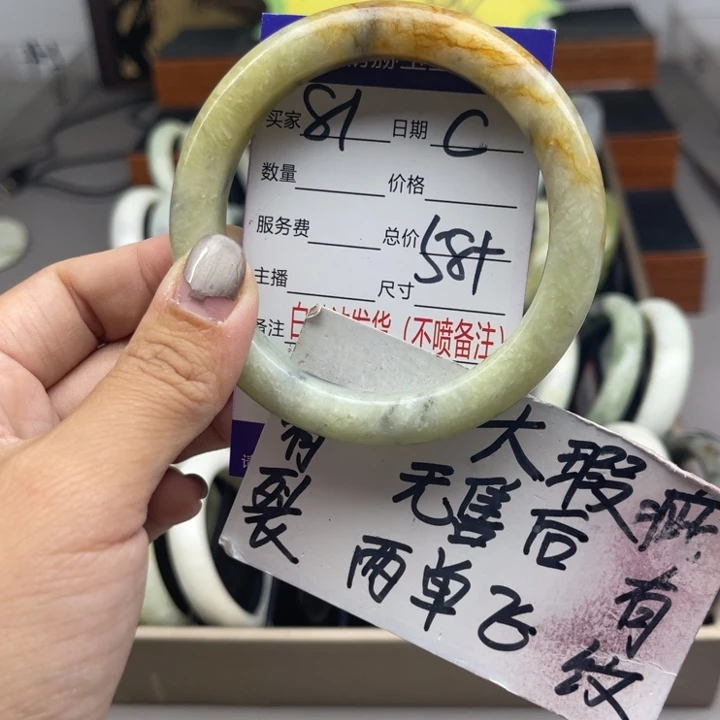 买家 81 日期 C
数量 价格
服务费 总价 58+
主播 尺寸
备注 发货（不喷备注）
有裂
大瑕疵
无售后 有纹
两单飞